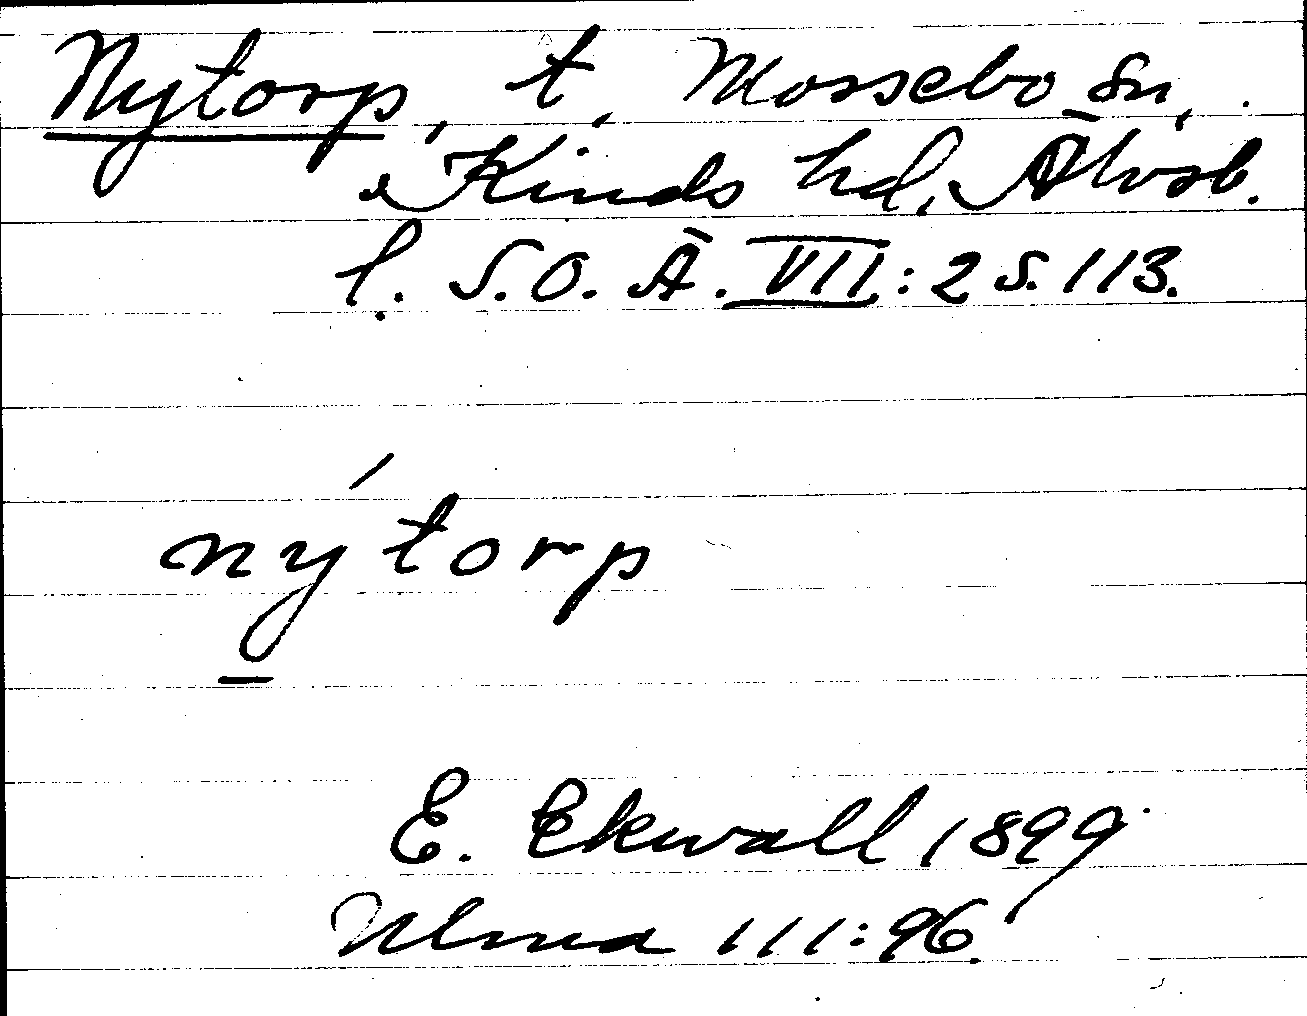 Nytorp, t. Mossebo sn,
Kinds hd, Älvsb.
l. S.O.Ä. VII:2 s. 113.
nýtorp
E. Ekwall 1899
Ulma 111:96.